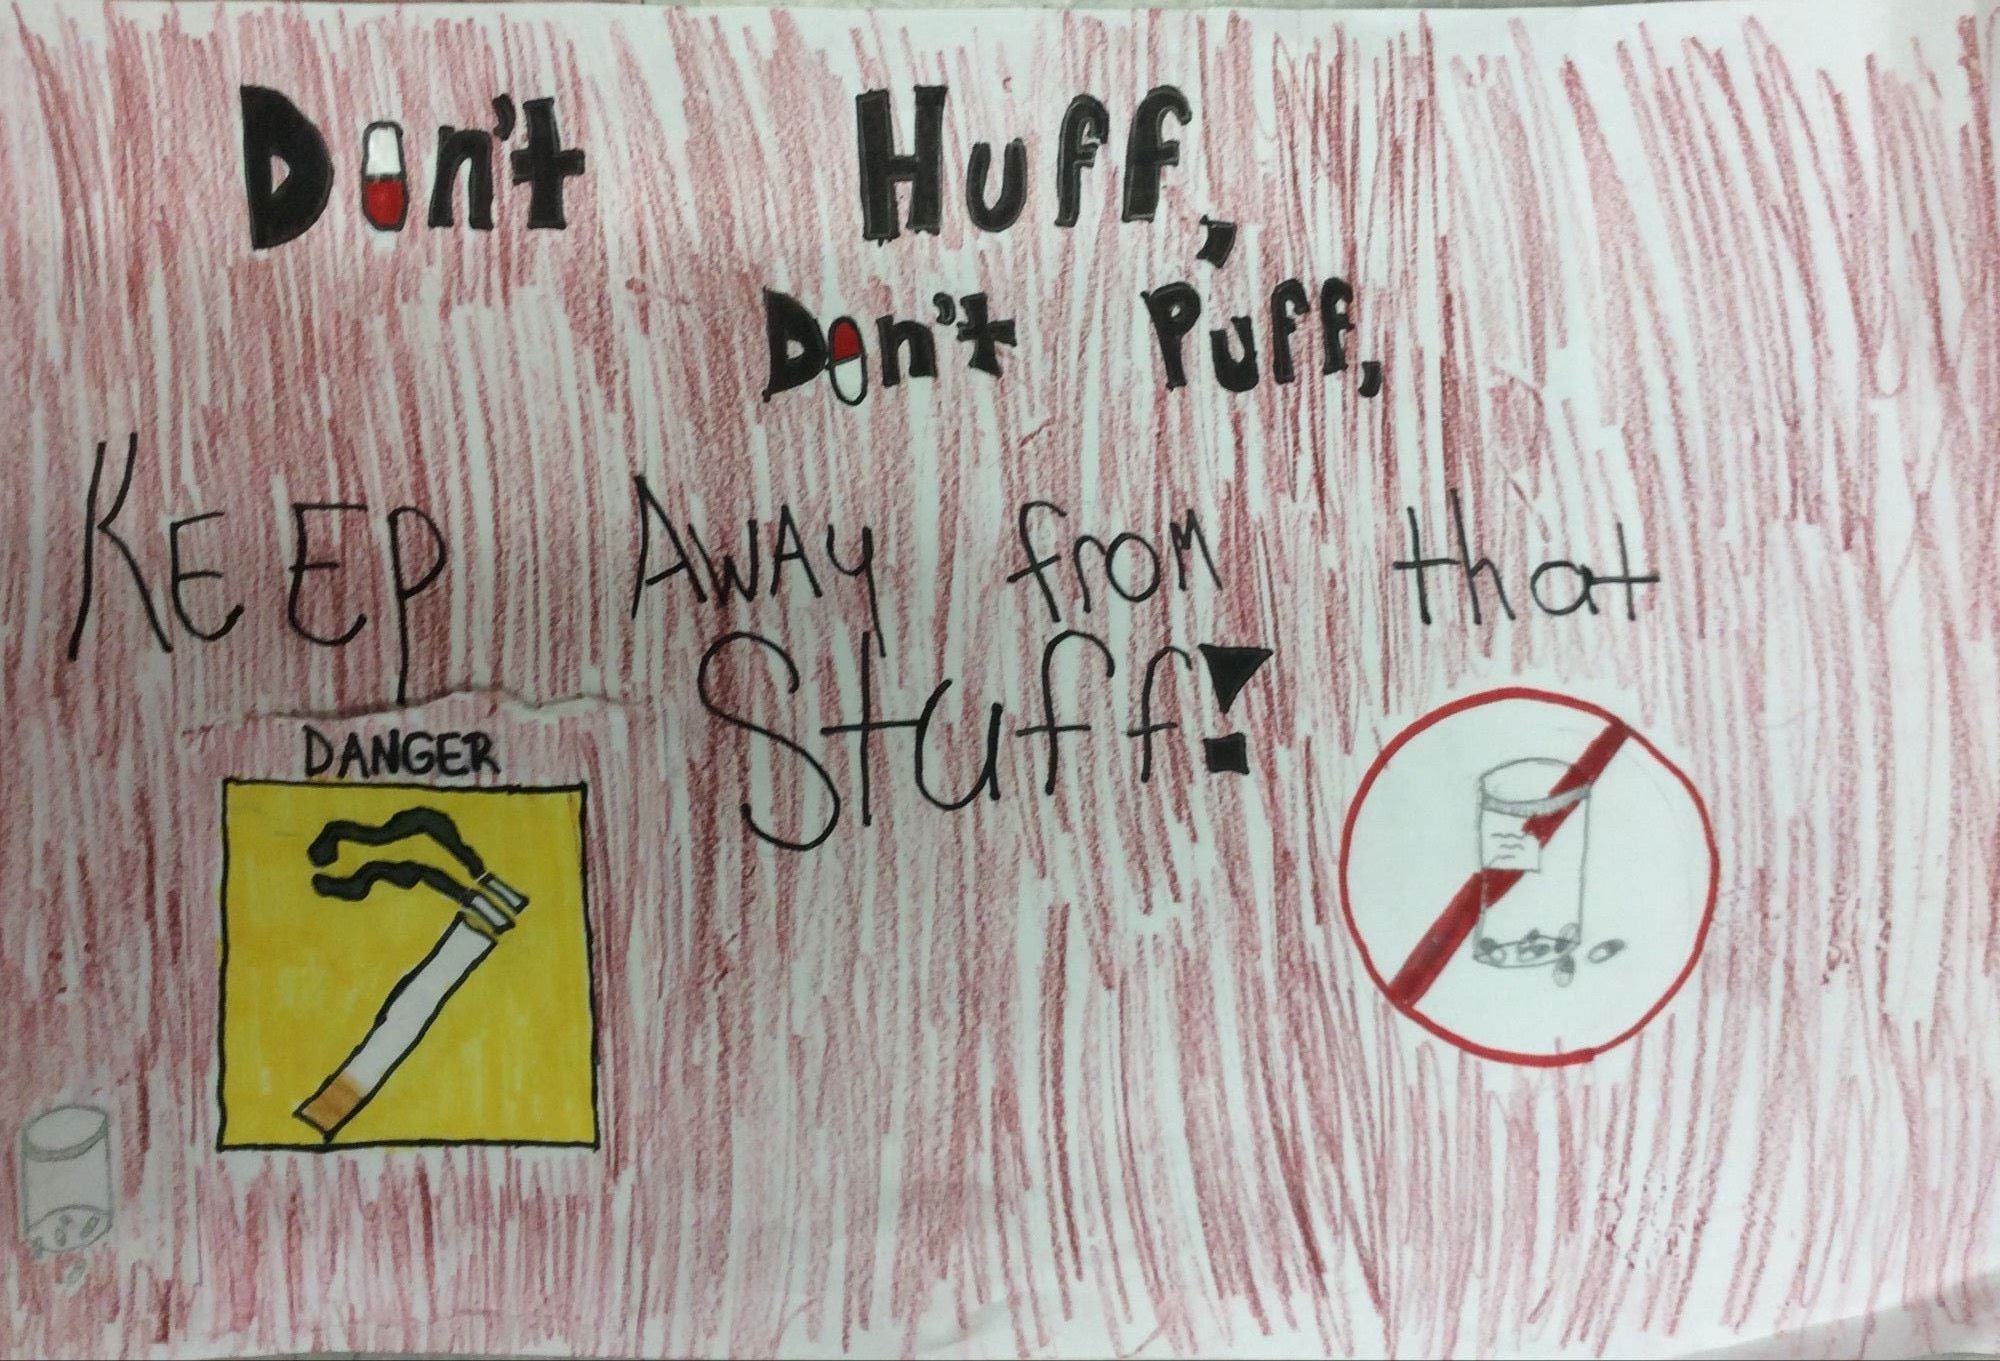 Don't Huff,
Don't Puff,
KEEP AWAY from that
Stuff!
DANGER